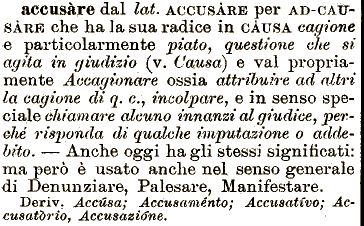 accusàre dal lat. ACCUSÀRE per AD-CAU-
SÀRE che ha la sua radice in CÀUSA cagione
e particolarmente piato, questione che si
agita in giudizio (v. Causa) e val propria-
mente Accagionare ossia attribuire ad altri
la cagione di q. c., incolpare, e in senso spe-
ciale chiamare alcuno innanzi al giudice, per-
ché risponda di qualche imputazione o adde-
bito. — Anche oggi ha gli stessi significati:
ma però è usato anche nel senso generale
di Denunziare, Palesare, Manifestare.
Deriv. Accúsa; Accusaménto; Accusatívo; Ac-
cusatòrio, Accusazióne.